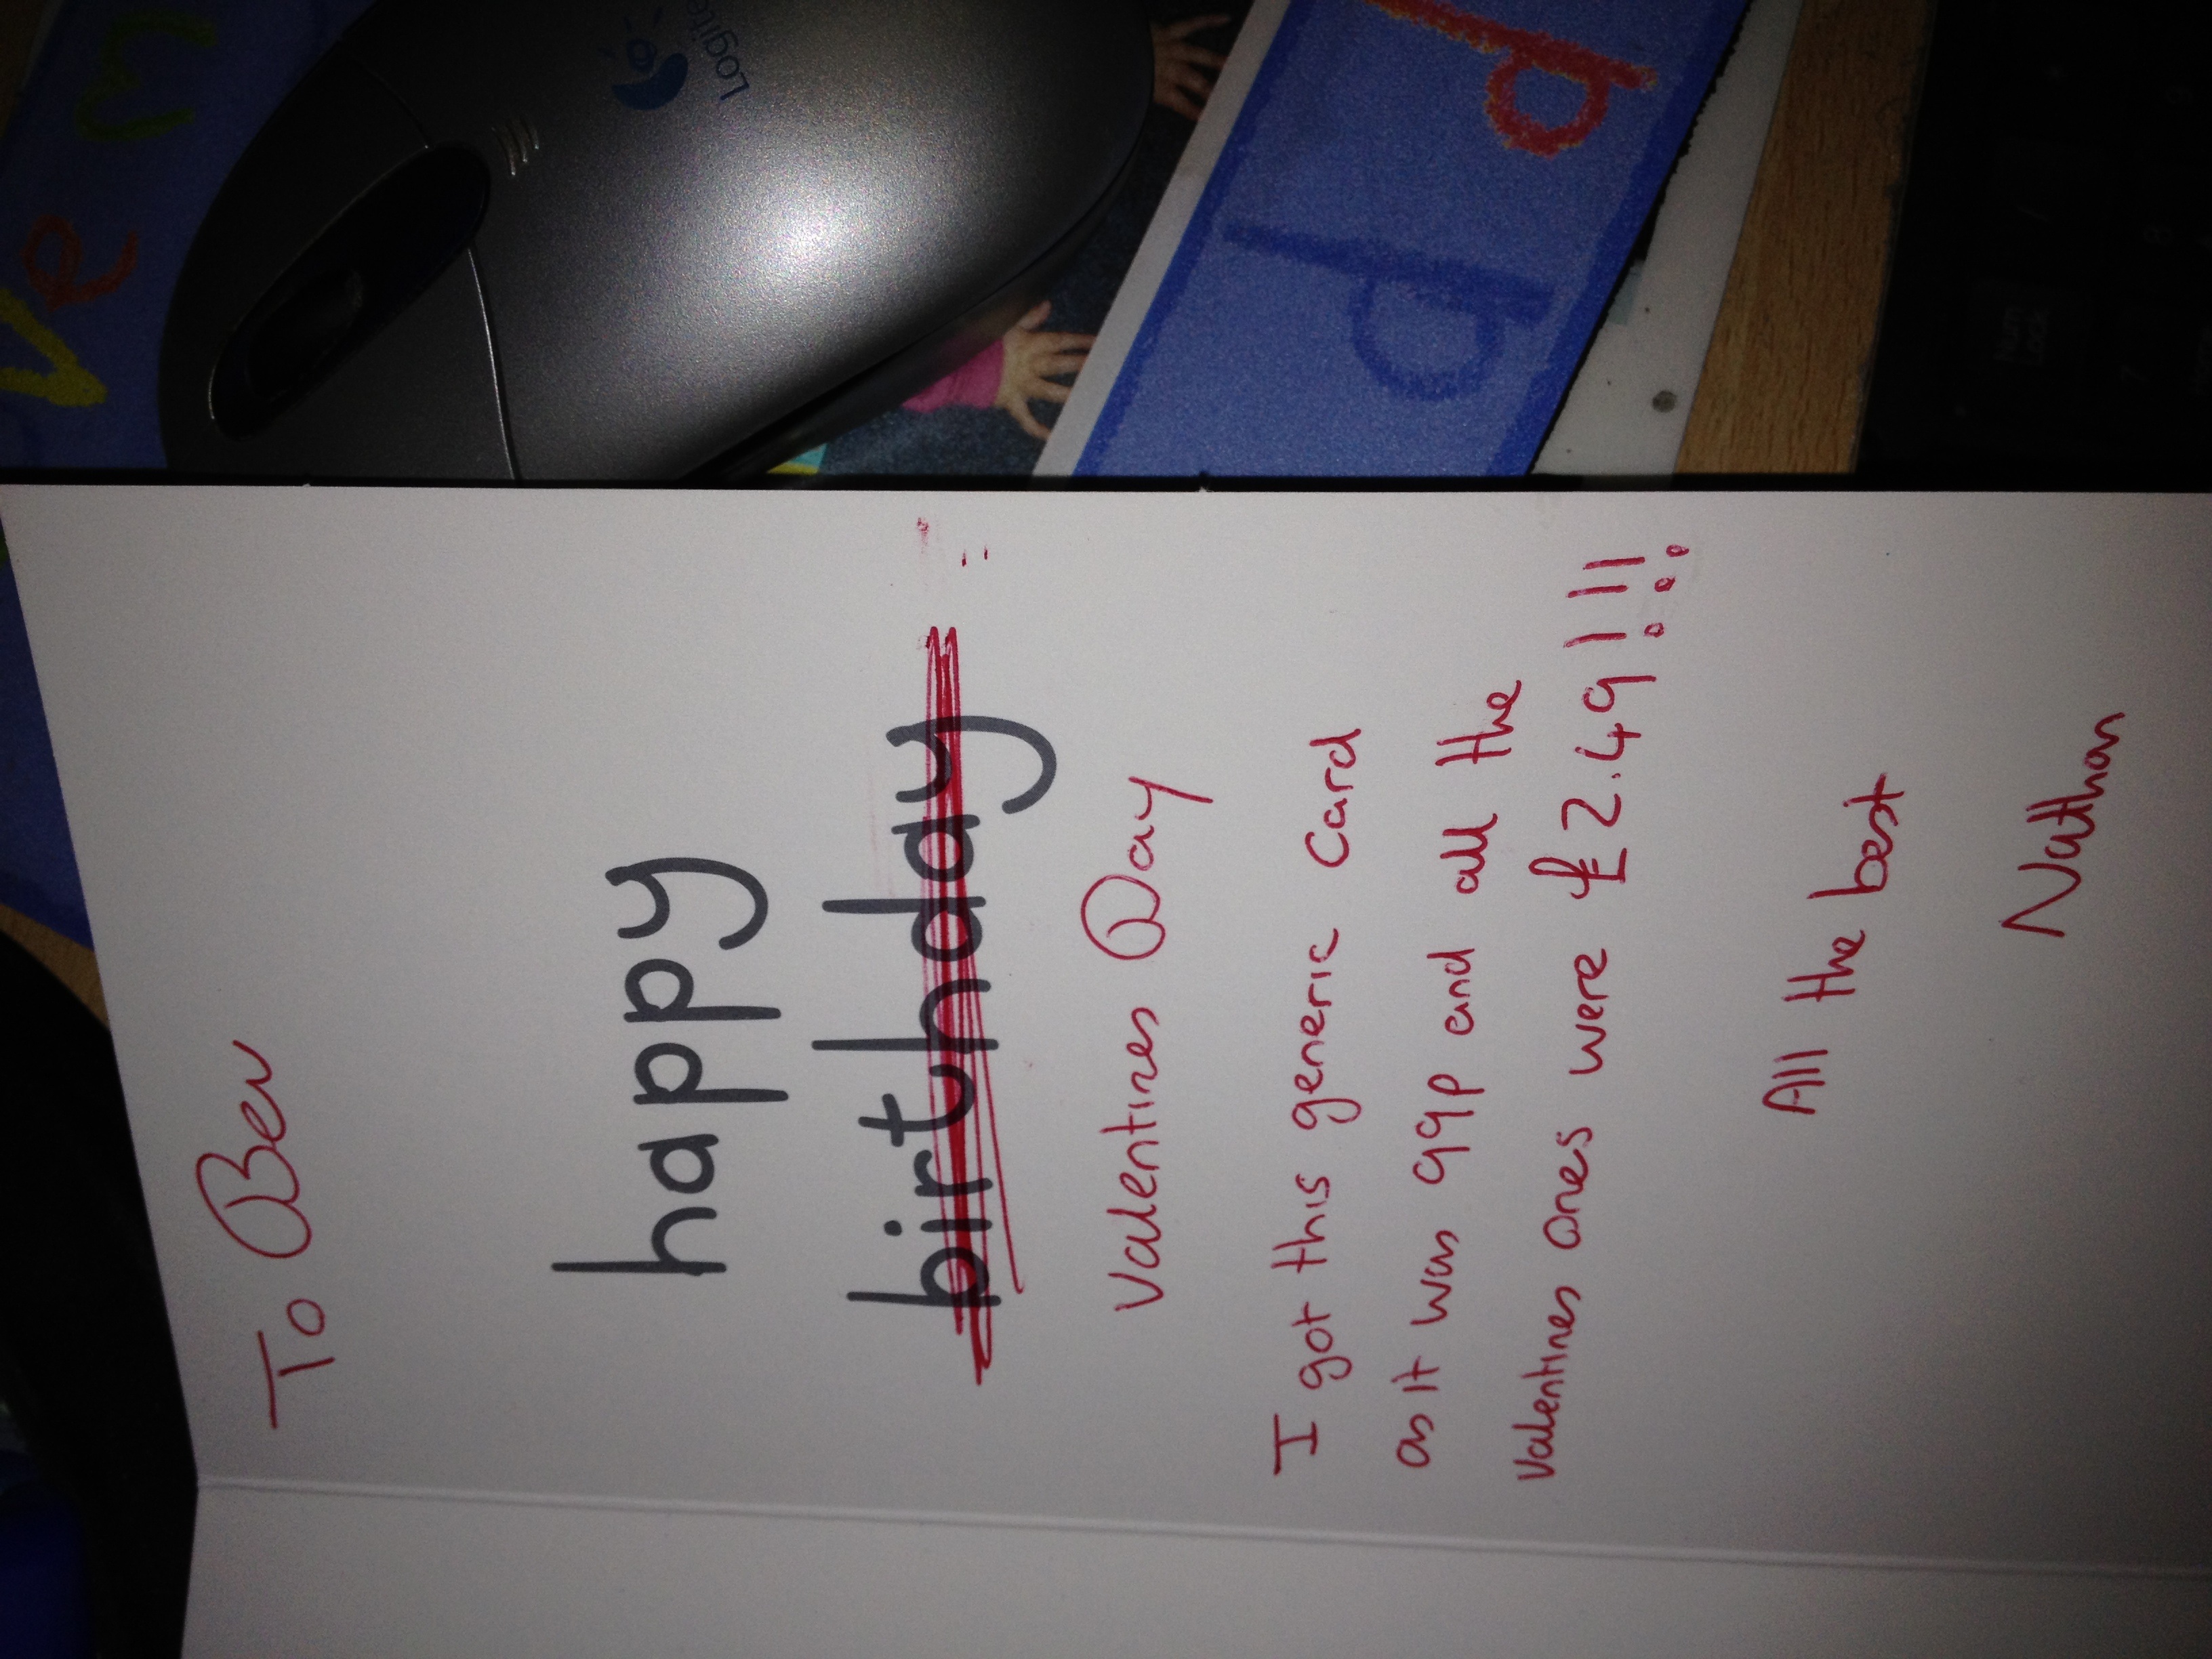 To Ben
happy
birthday
Valentines Day
I got this generic card
as it was 99p and all the
Valentines ones were £2.49!!!!
All the best
Nathan
Logite
Num
Lock
7
8
9
p
p